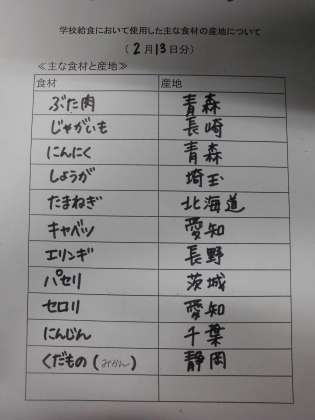 学校給食において使用した主な食材の産地について
(2月13日分)
≪主な食材と産地≫
食材 産地
ぶた肉 青森
じゃがいも 長崎
にんにく 青森
しょうが 埼玉
たまねぎ 北海道
キャベツ 愛知
エリンギ 長野
パセリ 茨城
セロリ 愛知
にんじん 千葉
くだもの(みかん) 静岡